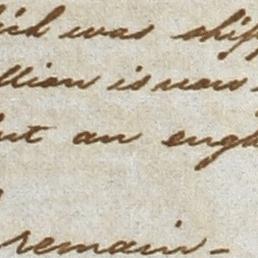 was ship
llion is now
but an engl
remain-